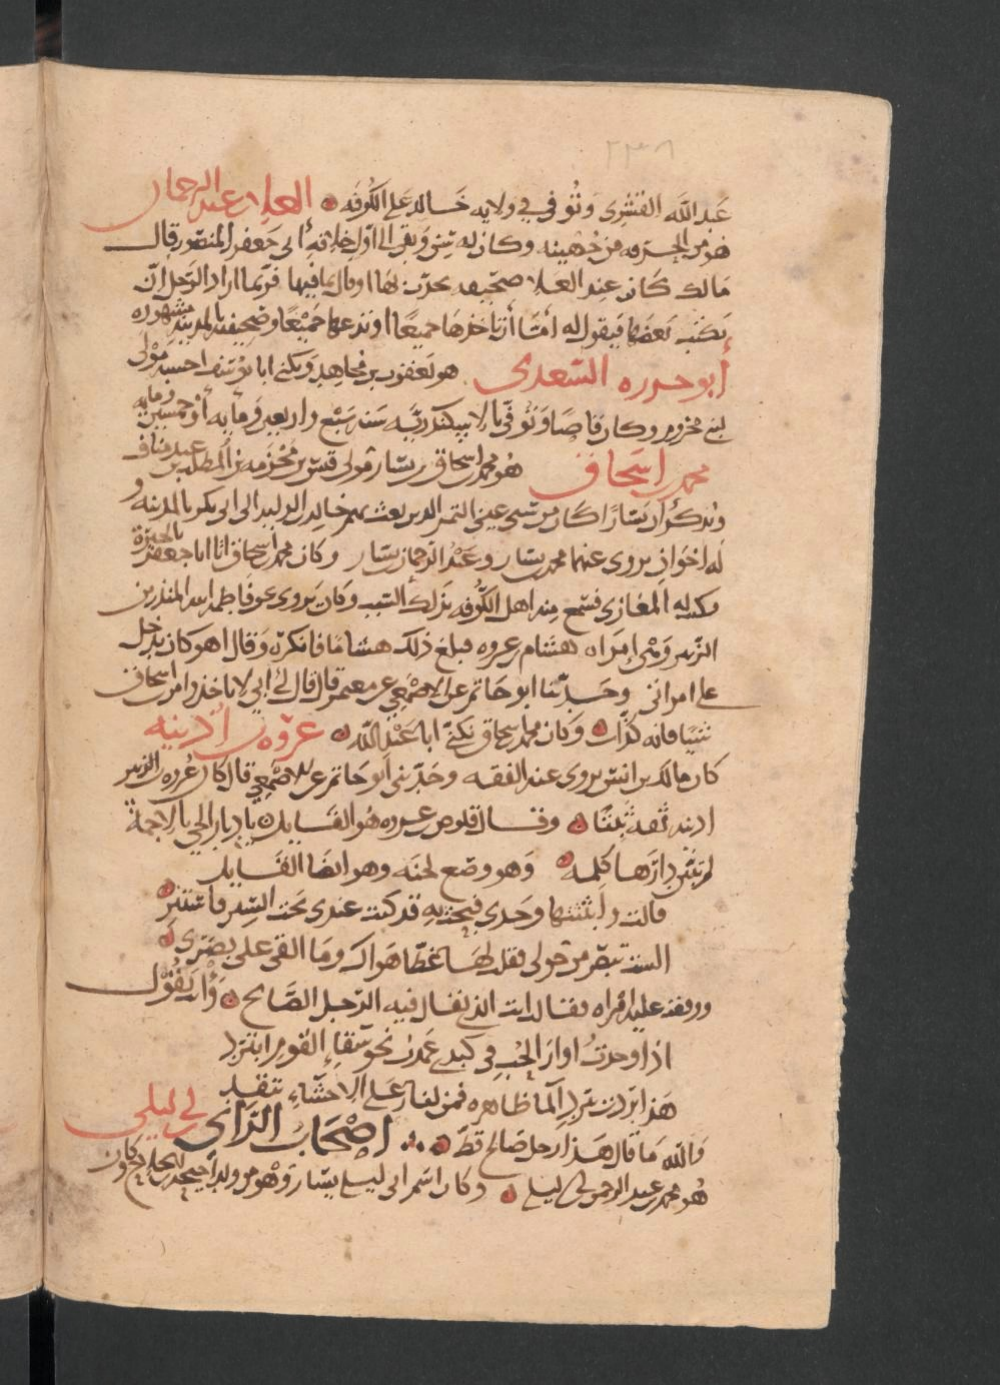 ٢٣٨
عبد الله القشري وتوفي في ولايه خالد على الكوفه العلا بن عبد الرحمان
هو من الحرقه من جهينه وكان له سن وبقي الى اول خلافه ابي جعفر المنصور قال
مالك كان عند العلا صحيفه يحدث بها او قال بما فيها فربما اراد الرجل ان
يكتب بعضها فيقول له اما ان تاخذها جميعا او تدعها جميعا وصحيفته بالمدينه مشهوره
أبو حزره السعدي هو يعقوب بن مجاهد ويكنى ابا يوسف احسبه مولى
لبني مخزوم وكان قاصا وتوفي بالاسكندريه سنه سبع واربعين ومايه او خمسين ومايه
محمد بن اسحاق هو محمد بن اسحاق بن يسار مولى قيس بن مخرمه بن المطلب بن عبد مناف
ويذكر ان يسارا كان من سبي عين التمر الذين بعث بهم خالد بن الوليد الى ابي بكر بالمدينه و
له اخوان يروى عنهما محمد بن يسار وعبد الرحمان بن يسار وكان محمد بن اسحاق اتا ابا جعفر بالحيرة
فكتب له المغازي فسمع منه اهل الكوفه بذلك السبب وكان يروى عن فاطمه ابنه المنذر بن
الزبير وهي امراه هشام بن عروه فبلغ ذلك هشاما فانكره وقال اهو كان يدخل
على امراتي وحدثنا ابو حاتم عن الاصمعي عن معتمر قال قال لي ابي لا تاخذ من ابن اسحاق
شيا فانه كذاب وكان محمد بن اسحاق يكنى ابا عبد الله عروه بن أذينه
كان مالك بن انس يروى عنه الفقه وحدثني ابو حاتم عن الاصمعي قال كان عروه بن
اذينه ثقه ثبتا وقال عروه هو القايل يا ديار الحي بالاجمة
لم تبين دارها كلمه وهو وضع لحنه وهو ايضا القايل
قالت وابثثتها وجدي فبحت به قد كنت عندي تحب الستر فاستتر
الست تبصر من حولي فقلت لها غطا هواك وما القى على بصري
ووقفت عليه امراه فقالت انت الذي يقال فيه الرجل الصالح وأنت تقول
اذا وجدت اوار الحب في كبدي عمدت نحو سقاء القوم ابترد
هذا بردت ببرد الما ظاهره فمن لنار على الاحشاء تتقد
والله ما قال هذا رجل صالح قط اصحاب الراى بن ابي ليلى
هو محمد بن عبد الرحمن بن ابي ليلى وكان اسم ابي ليلى يسار وهو من ولد احيحه بن الجلاح وكان